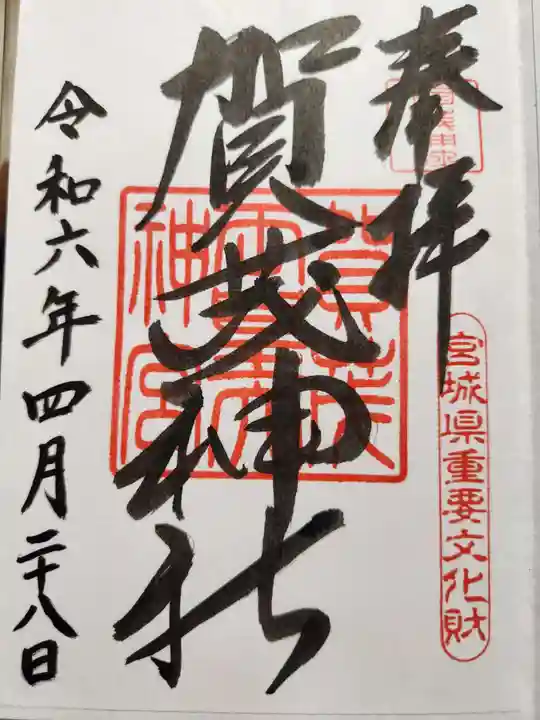 奉拝
宮城県重要文化財
賀茂神社
令和六年四月二十八日